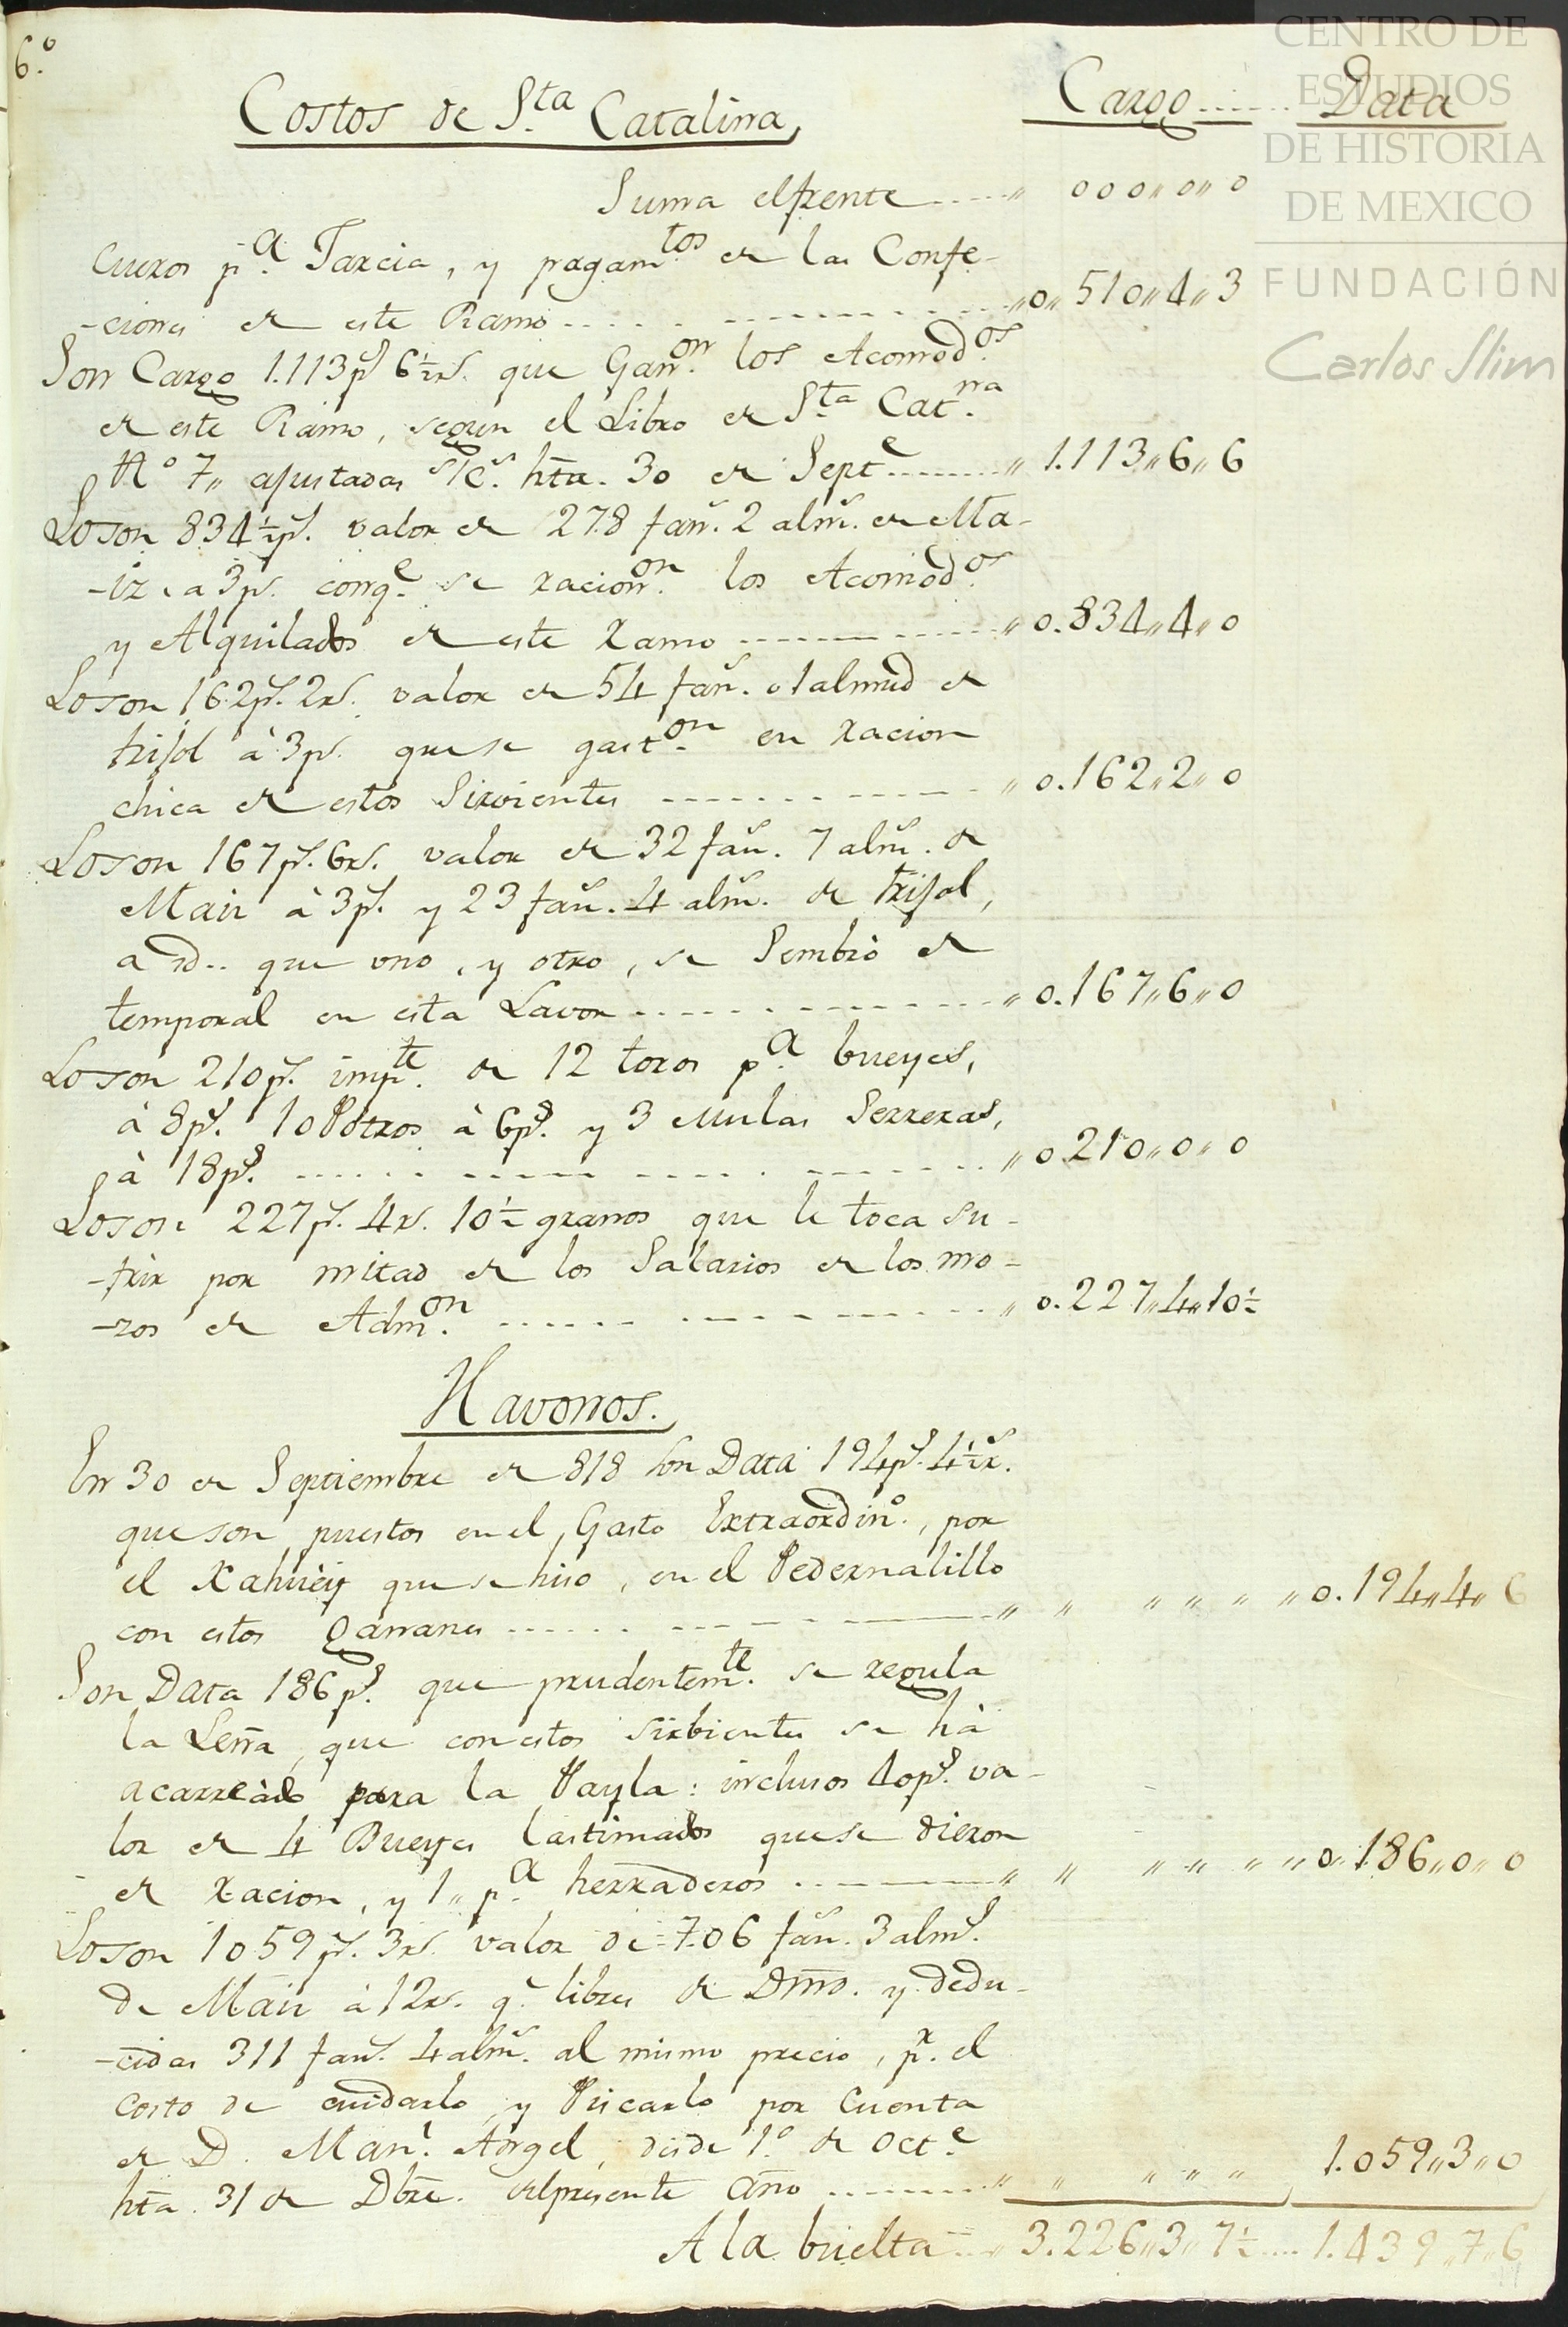 6.º
Costos de S.ta Catalina
Cargo ...... Data
Suma elfrente ..... " 000" 0" 0
Cueros p.a Tarcia, y pagam.tos de las Confe-
-ciones de este Ramo .... "0" 510" 4" 3
Son Cargo 1.113 p.s 6½ r.s que Gan.on los Acomod.os
de este Ramo, segun el Libro de S.ta Cat.na
N.º 7" ajustadas s/c.s hta. 30 de Sept.e ..... " 1.113" 6" 6
Loson 834½ p.s valor de 278 fan.s 2 alm.s de Ma-
-iz, a 3 p.s conq.e se racion.on los Acomod.os
y Alquilados de este ramo ..... " 0.834" 4" 0
Loson 162 p.s 2 r.s valor de 54 fan.s 1 almud de
frijol à 3 p.s que se gast.on en racion
chica de estos Sirvientes ..... " 0.162" 2" 0
Loson 167 p.s 6 r.s valor de 32 fan.s 7 alm.s de
Maiz à 3 p.s y 23 fan.s 4 alm.s de frijol,
a id.. que uno, y otro, se Sembrò de
temporal en esta Lavor ..... " 0.167" 6" 0
Loson 210 p.s imp.te de 12 toros p.a bueyes,
à 8 p.s 10 Potros à 6 p.s y 3 Mulas Serreras,
à 18 p.s ..... " 0.210" 0" 0
Loson 227 p.s 4 r.s 10½ granos que le toca su-
-frir por mitad de los Salarios de los mo-
-zos de Adm.on ..... " 0.227" 4" 10½
Havonos.
En 30 de Septiembre de 818 son Data 194 p.s 4½ r.s
que son puestos en el Gasto Extraordin.o, por
el Xahuèy que se hiso, en el Pedernalillo
con estos Gañanes ..... " " " " " " 0.194" 4" 6
Son Data 186 p.s que prudentem.te se regula
la Leña, que con estos sirbientes se hà
acarreàdo para la Payla: inclusos 40 p.s va-
lor de 4 Bueyes lastimados que se dieron
de racion, y 1" p.a herraderos ..... " " " " " " 0.186" 0" 0
Loson 1059 p.s 3 r.s valor de 706 fan.s 3 alm.s
de Maiz à 12 r.s q.e libres de Dmo. y dedu-
-cidas 311 fan.s 4 alm.s al mismo precio, p.r el
costo de cuidarlo, y Picarlo por Cuenta
de D. Man.l Angel, desde 1.º de Oct.e
hta. 31 de Dbre. delpresente año ..... " " " " " 1.059" 3" 0
A la buelta ... " 3.226" 3" 7½ .... 1.439" 7" 6
CENTRO DE
ESTUDIOS
DE HISTORIA
DE MEXICO
FUNDACIÓN
Carlos Slim